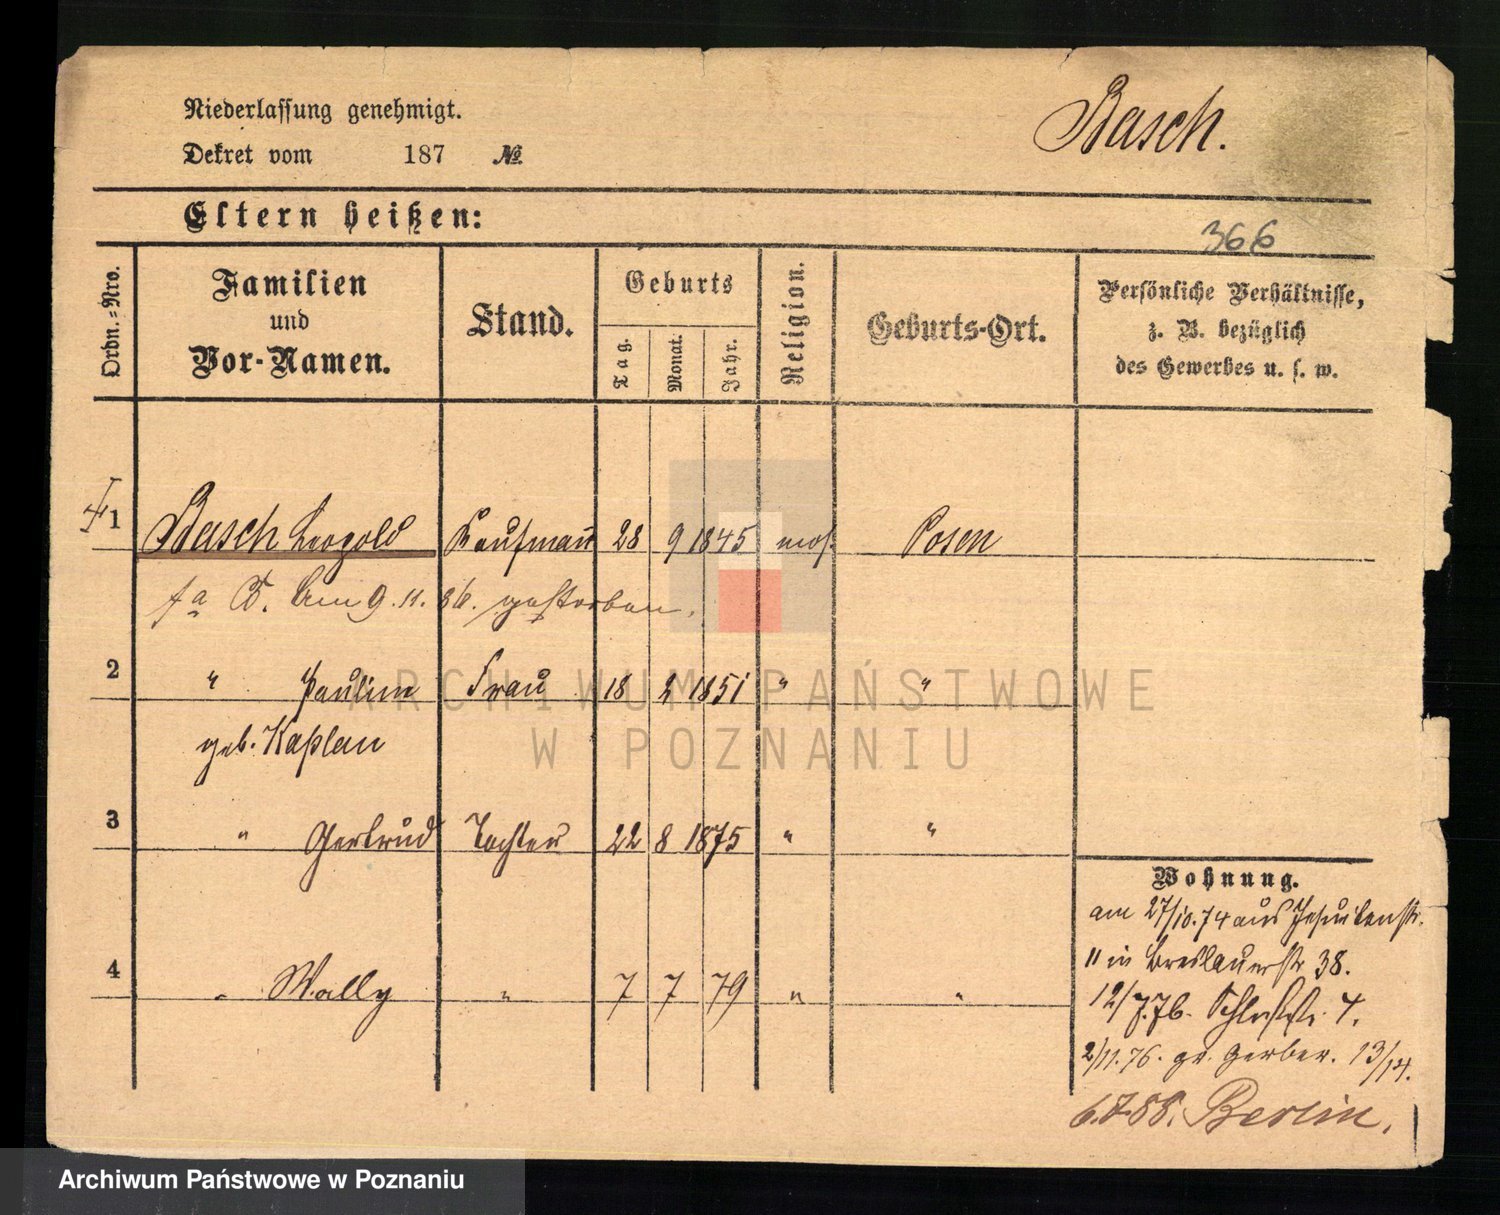 Niederlassung genehmigt.
Dekret vom 187 №
Basch.
Eltern heißen:
366
Ordn.-Nro.
Familien
und
Vor-Namen.
Stand.
Geburts
Tag. Monat. Jahr.
Religion.
Geburts-Ort.
Persönliche Verhältnisse,
z. B. bezüglich
des Gewerbes u. s. w.
1 Basch Leopold Kaufmann 28 9 1845 mos. Posen
am 9.11.86. gestorben.
2 " Paulin Frau 18 2 1851 " "
geb. Kaplan
3 " Gertrud Tochter 22 8 1875 " "
4 " Wally " 7 7 79 " "
Wohnung.
am 27/10.74 aus Jesuitenstr.
11 in Breslauerstr 38.
12/7.76. Schloßstr. 4.
2/11.76. gr. Gerber. 13/14.
6.7.88. Berlin.
ARCHIWUM PAŃSTWOWE
W POZNANIU
Archiwum Państwowe w Poznaniu